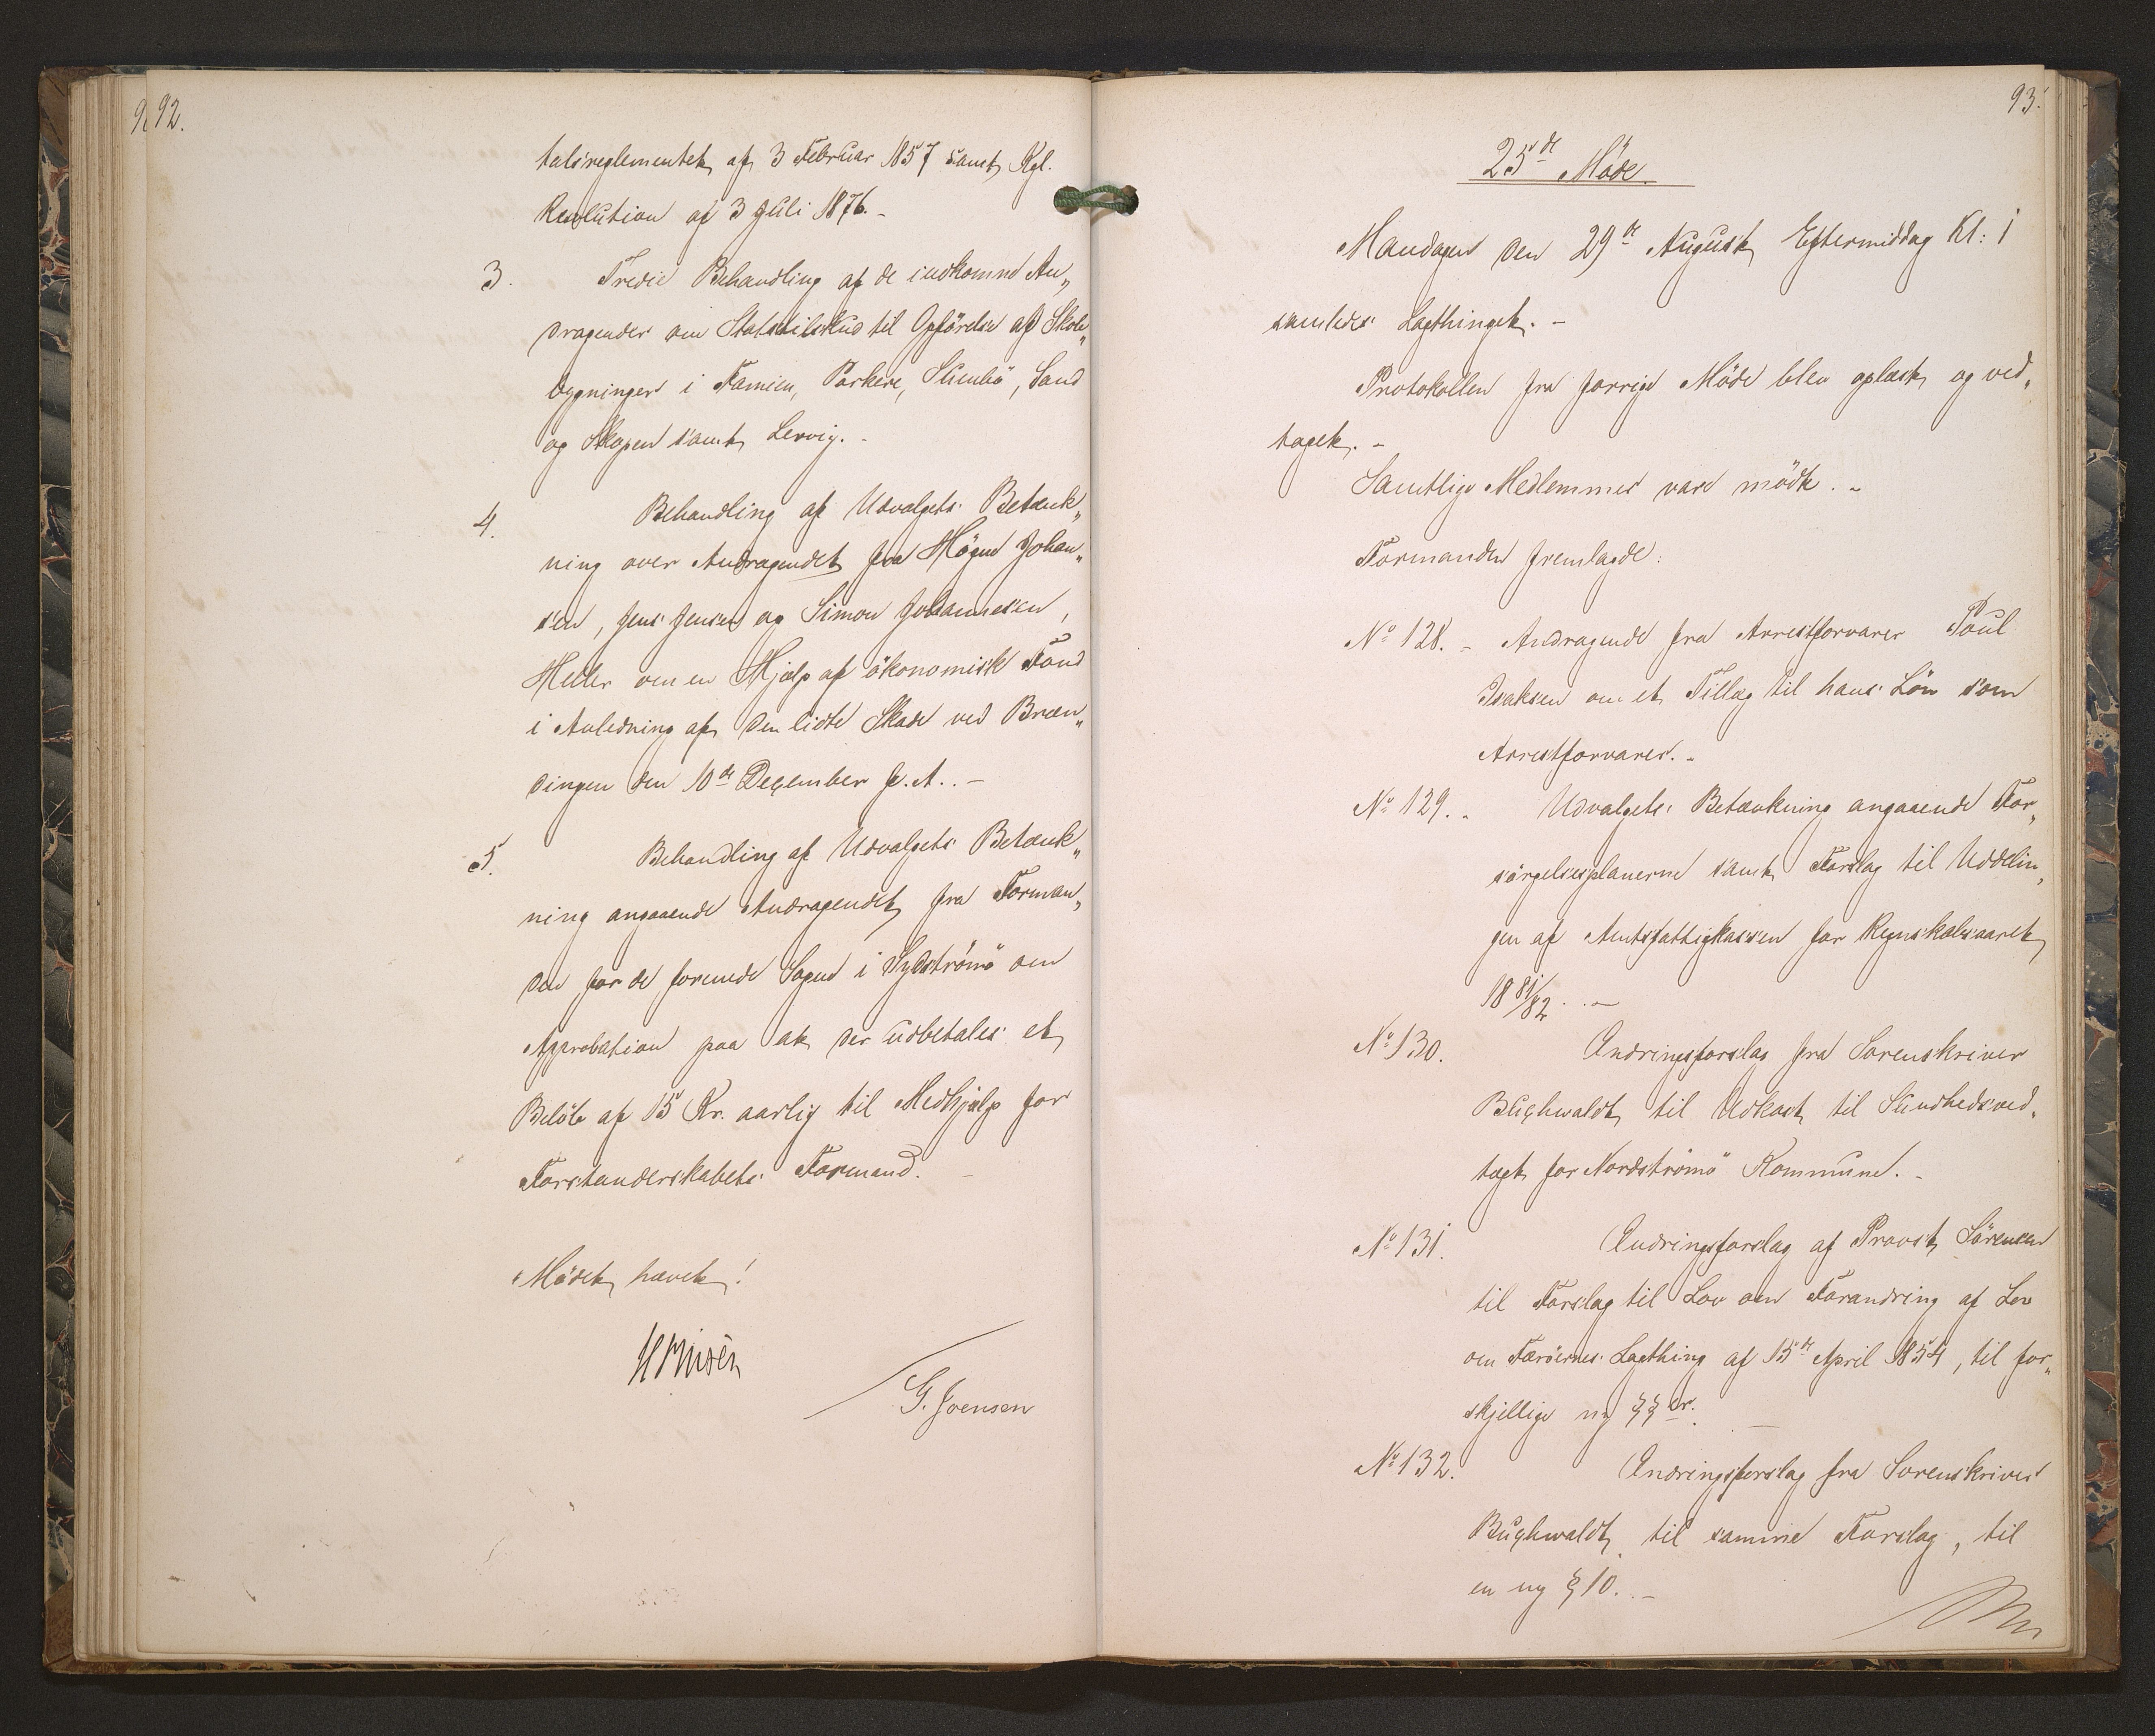 92.
talsreglementet af 3 Februar 1857 samt Kgl.
Resolution af 3 Juli 1876. -
3. Tredie Behandling af de indkomne An„
dragender om Statstilskud til Opförelse af Skole„
bygninger i Famien, Porkere, Stimbö, Sand
og Skopen samt Lervig. -
4. Behandling af Udvalgets Betænk„
ning over Andragendet fra Högne Johan„
sen, Jens Jensen og Simon Johannesen,
om en Hjælp af ökonomisk Fond
i Anledning af den lidte Skade ved Bræn„
dingen den 10de December f. A.. -
5. Behandling af Udvalgets Betænk„
ning angaaende Andragendet fra Forman„
den for de forenede Sogne i Sydströmö om
Approbation paa at der udbetales et
Belöb af 15 Kr. aarlig til Medhjælp for
Forstanderskabets Formand. -
Mödet hævet!
G. Joensen
93.
25de Möde.
Mandagen den 29de August Eftermiddag Kl: 1
samledes Lagthinget. -
Protokollen fra forrige Möde blev oplæst og ved„
taget. -
Samtlige Medlemmer vare mödte. -
Formanden fremlagde:
No 128. - Andragende fra Arrestforvarer Poul
Isaksen om et Tillæg til hans Lön som
Arrestforvarer. -
No 129. - Udvalgets Betænkning angaaende For„
sörgelsesplanerne samt Forslag til Uddelin„
gen af Amtsfattigkassen for Regnskabsaaret
1881/82. . -
No 130. Ændringsforslag fra Sorenskriver
Buchwaldt til Udkast til Sundhedsved„
tægt for Nordströmö Kommune. -
No 131. Ændringsforslag af Provst Sörensen
til Forslag til Lov om Forandring af Lov
om Færöernes Lagthing af 15de April 1854, til for„
skjellige ny §§er. -
No 132. Ændringsforslag fra Sorenskriver
Buchwaldt til samme Forslag, til
en ny § 10. . -